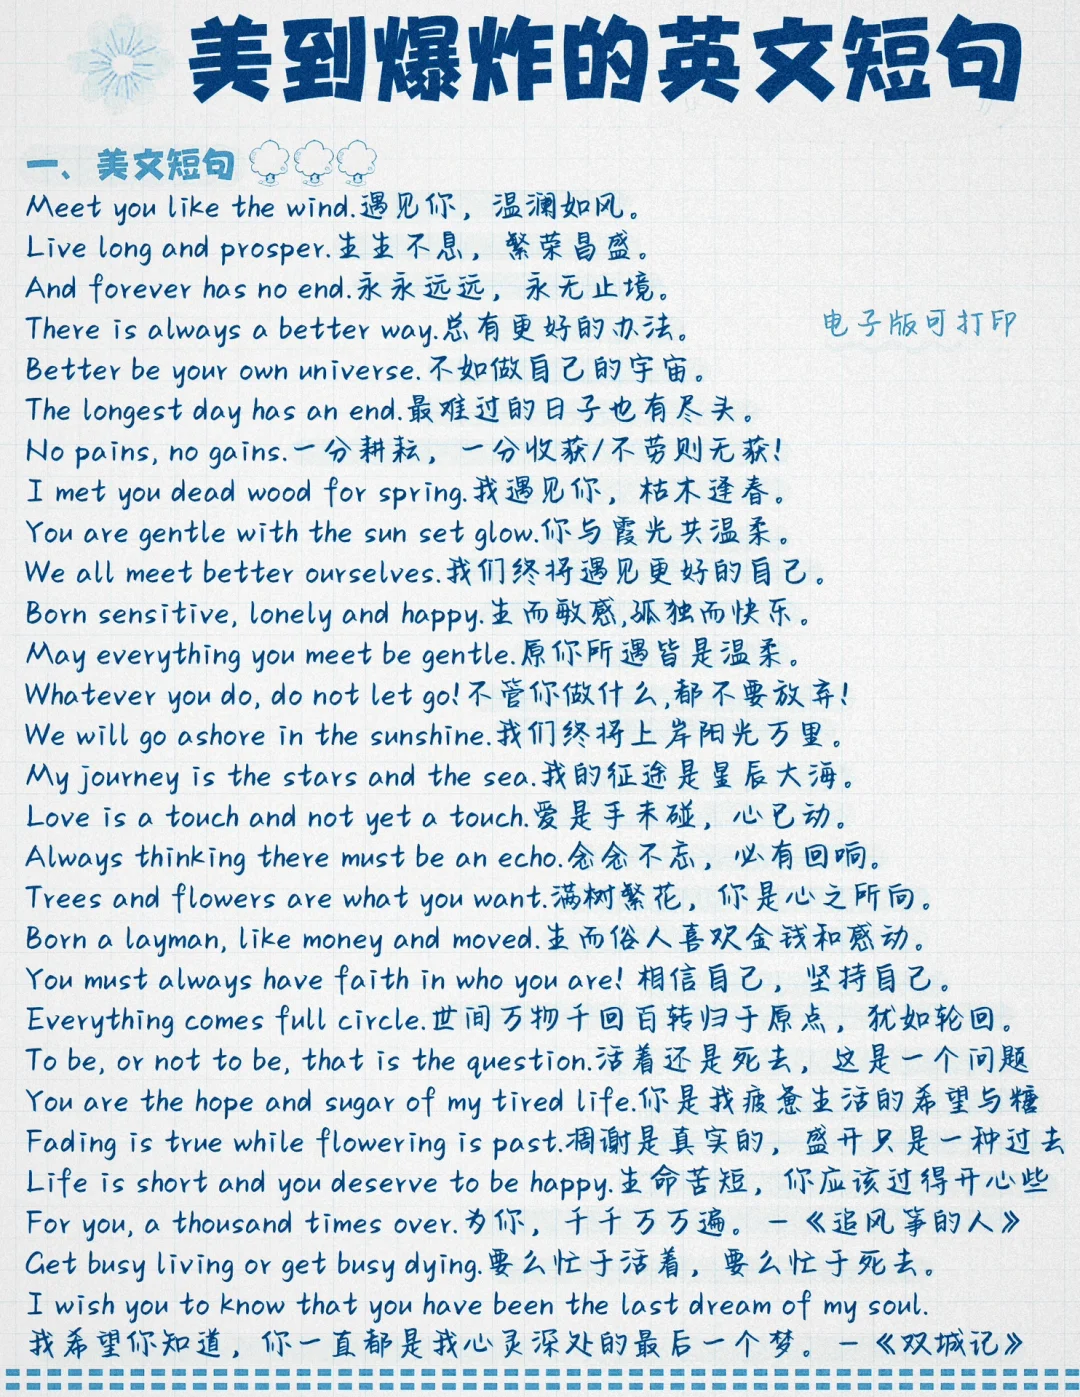 美到爆炸的英文短句
一、美文短句
Meet you like the wind.遇见你，温澜如风。
Live long and prosper.生生不息，繁荣昌盛。
And forever has no end.永永远远，永无止境。
There is always a better way.总有更好的办法。
电子版可打印
Better be your own universe.不如做自己的宇宙。
The longest day has an end.最难过的日子也有尽头。
No pains, no gains.一分耕耘，一分收获/不劳则无获!
I met you dead wood for spring.我遇见你，枯木逢春。
You are gentle with the sun set glow.你与霞光共温柔。
We all meet better ourselves.我们终将遇见更好的自己。
Born sensitive, lonely and happy.生而敏感,孤独而快乐。
May everything you meet be gentle.原你所遇皆是温柔。
Whatever you do, do not let go!不管你做什么,都不要放弃!
We will go ashore in the sunshine.我们终将上岸阳光万里。
My journey is the stars and the sea.我的征途是星辰大海。
Love is a touch and not yet a touch.爱是手未碰，心已动。
Always thinking there must be an echo.念念不忘，必有回响。
Trees and flowers are what you want.满树繁花，你是心之所向。
Born a layman, like money and moved.生而俗人喜欢金钱和感动。
You must always have faith in who you are! 相信自己，坚持自己。
Everything comes full circle.世间万物千回百转归于原点，犹如轮回。
To be, or not to be, that is the question.活着还是死去，这是一个问题
You are the hope and sugar of my tired life.你是我疲惫生活的希望与糖
Fading is true while flowering is past.凋谢是真实的，盛开只是一种过去
Life is short and you deserve to be happy.生命苦短，你应该过得开心些
For you, a thousand times over.为你，千千万万遍。—《追风筝的人》
Get busy living or get busy dying.要么忙于活着，要么忙于死去。
I wish you to know that you have been the last dream of my soul.
我希望你知道，你一直都是我心灵深处的最后一个梦。—《双城记》